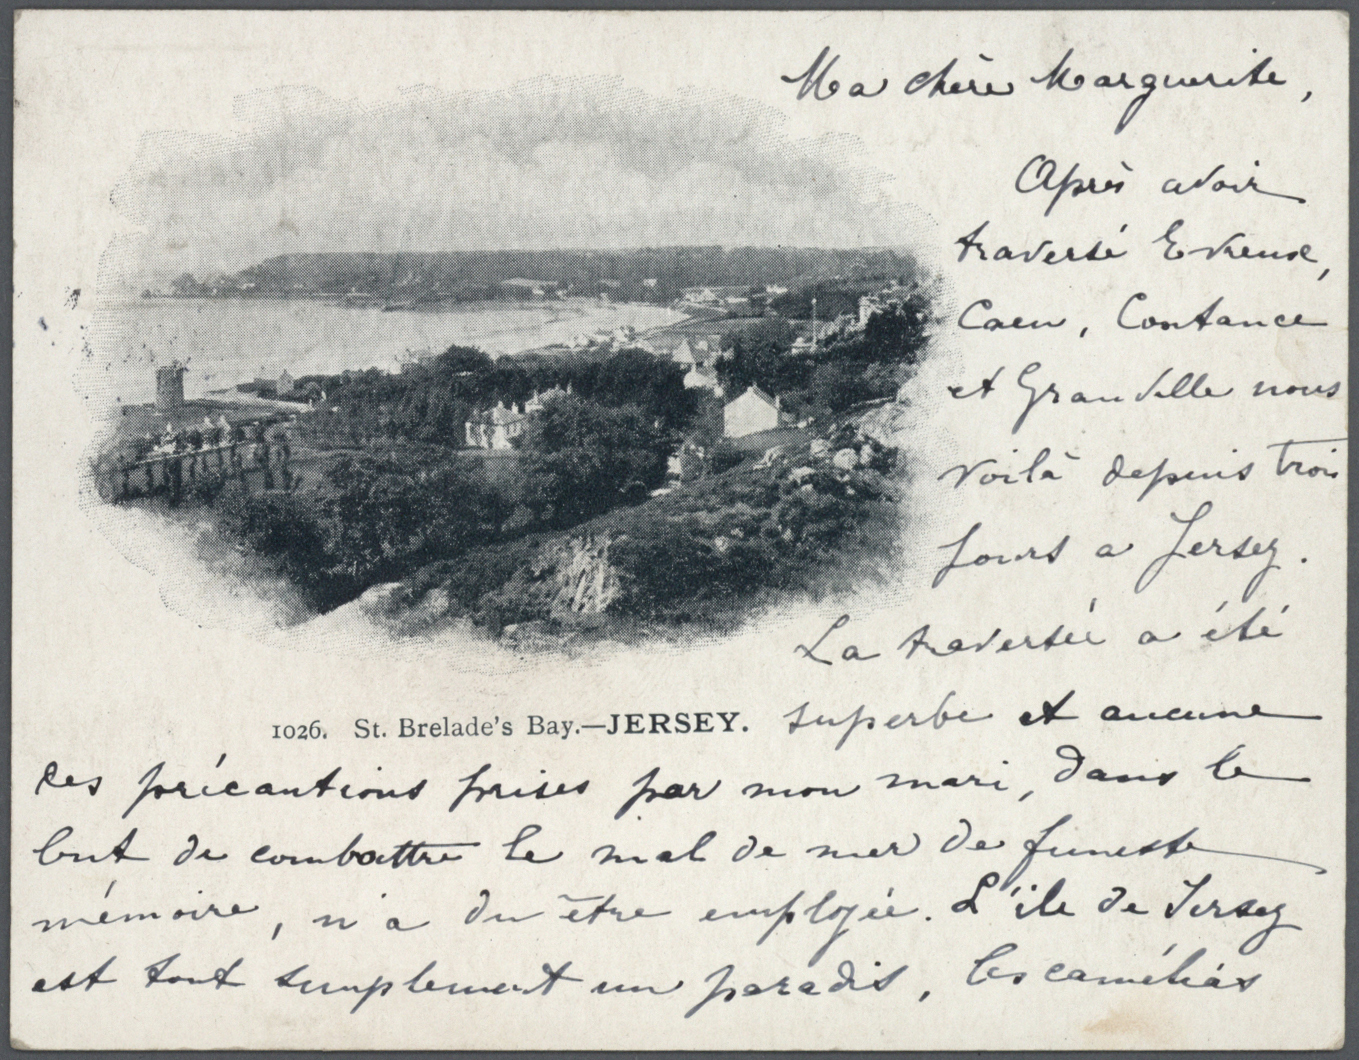 Ma chère Marguerite,
Après avoir
traversé Evreux,
Caen, Coutance
et Granville nous
voilà depuis trois
jours a Jersey.
La traversée a été
1026. St. Brelade's Bay.—JERSEY.
superbe et aucune
des précautions prises par mon mari, dans le
but de combattre le mal de mer de funeste
mémoire, n'a du être employée. L'île de Jersey
est tout simplement un paradis, les camélias